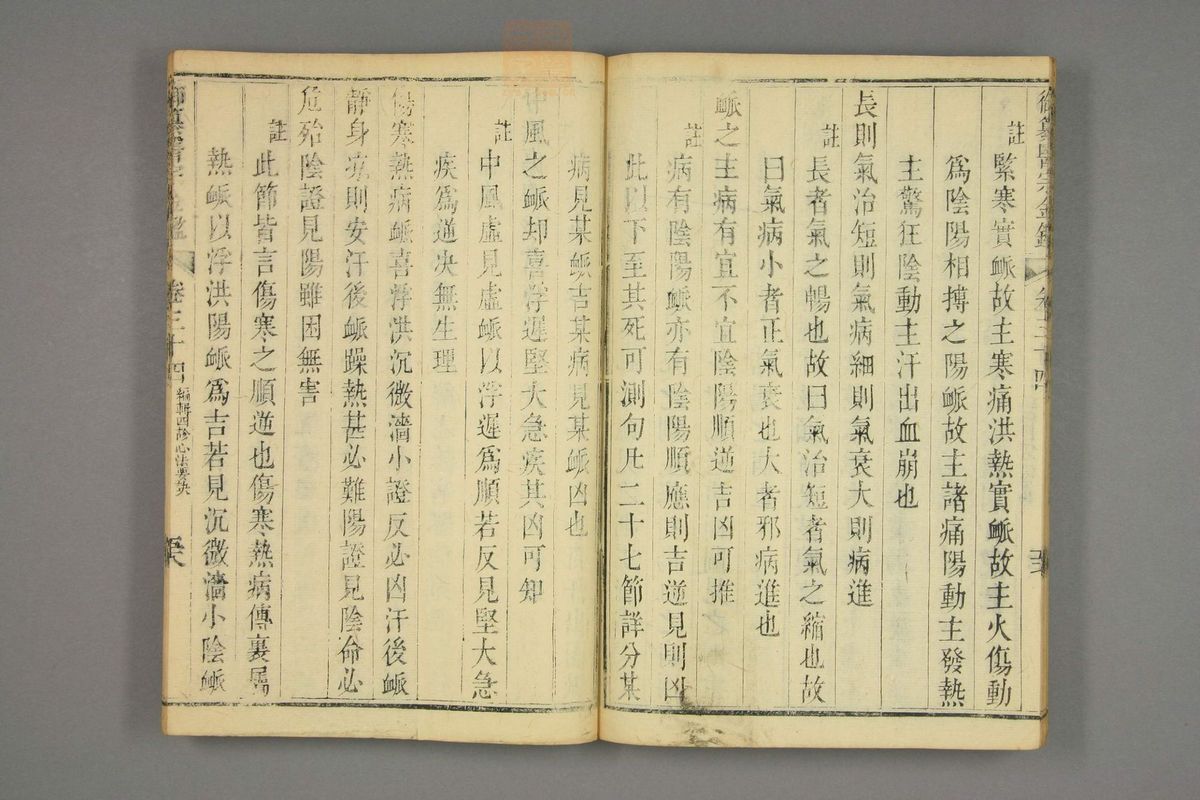 御纂醫宗金鑑 卷三十四 五
註 緊寒實脈故主寒痛洪熱實脈故主火傷動
爲陰陽相搏之陽脈故主諸痛陽動主發熱
主驚狂陰動主汗出血崩也
長則氣治短則氣病細則氣衰大則病進
註 長者氣之暢也故曰氣治短者氣之縮也故
曰氣病小者正氣衰也大者邪病進也
脈之主病有宜不宜陰陽順逆吉凶可推
註 病有陰陽脈亦有陰陽順應則吉逆見則凶
此以下至其死可測句凡二十七節詳分某
病見某脈吉某病見某脈凶也
中風之脈却喜浮遲堅大急疾其凶可知
註 中風虛見虛脈以浮遲爲順若反見堅大急
疾爲逆决無生理
傷寒熱病脈喜浮洪沉微濇小證反必凶汗後脈
靜身凉則安汗後脈躁熱甚必難陽證見陰命必
危殆陰證見陽雖困無害
註 此節皆言傷寒之順逆也傷寒熱病傳裏屬
熱脈以浮洪陽脈爲吉若見沉微濇小陰脈
御纂醫宗金鑑 卷三十四 編輯四診心法要訣